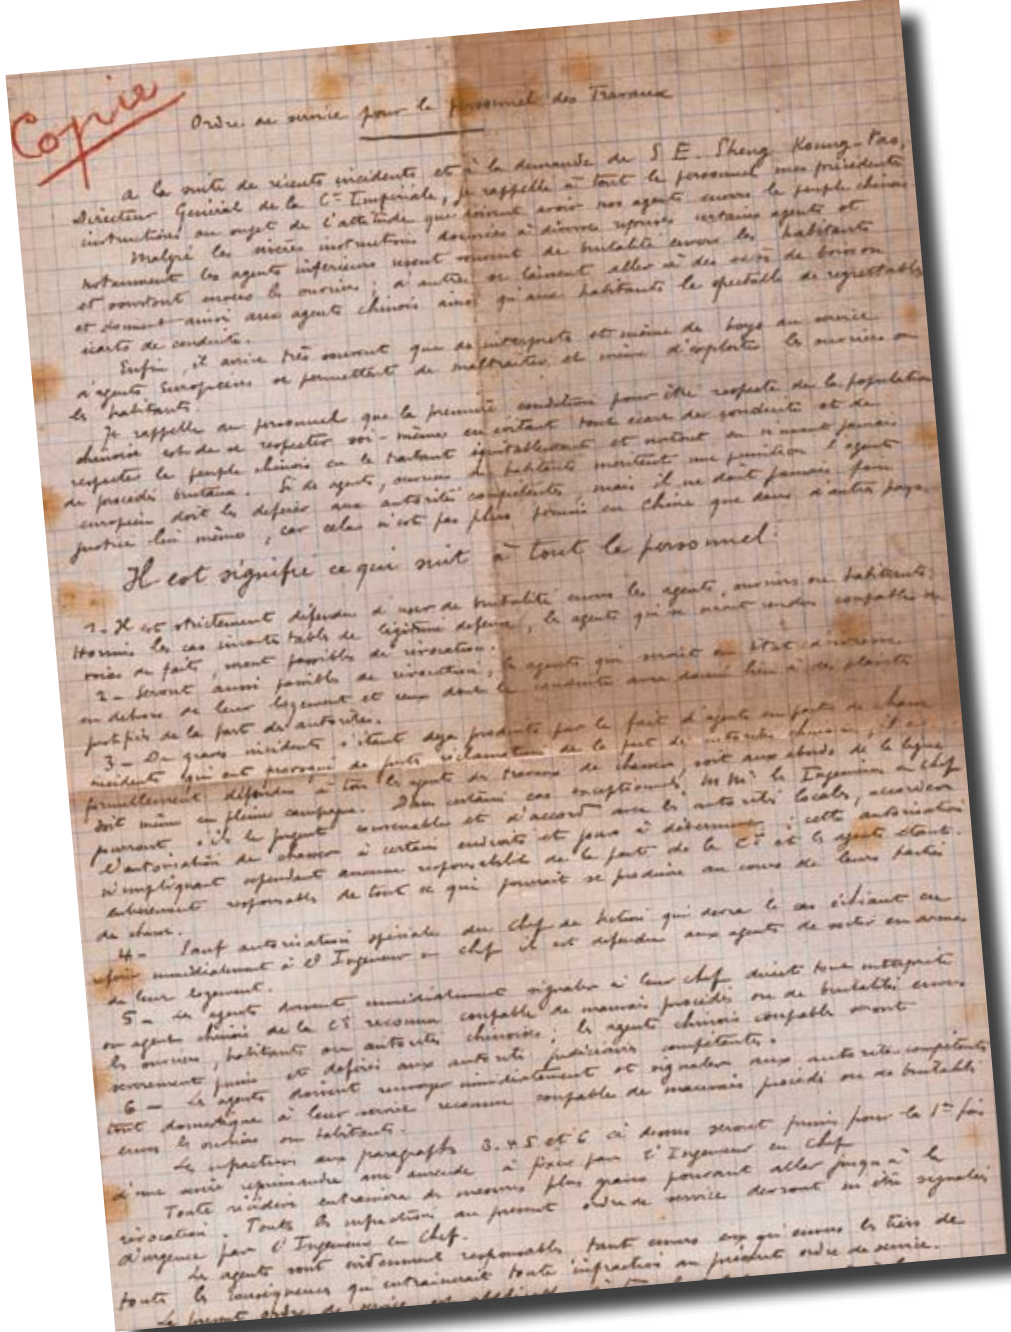 Copie
Ordre de service pour le personnel des Travaux
A la suite de récents incidents et à la demande de S. E. Sheng Koung-Pao,
Directeur Général de la Cie Impériale, je rappelle à tout le personnel mes précédentes
instructions au sujet de l'attitude que doivent avoir nos agents envers le peuple chinois.
Malgré les sévères instructions données à diverses reprises certains agents et
notamment les agents inférieurs usent souvent de brutalité envers les habitants
et surtout envers les ouvriers ; d'autres se laissent aller à des excès de boisson
et donnent ainsi aux agents chinois ainsi qu'aux habitants le spectacle de regrettables
écarts de conduite.
Enfin, il arrive très souvent que des interprets et même des boys au service
d'agents Européens se permettent de maltraiter et même d'exploiter les ouvriers ou
les habitants.
Je rappelle au personnel que la première condition pour être respecté de la population
chinoise est de se respecter soi-même en évitant tout écart de conduite et de
respecter le peuple chinois en le traitant équitablement et surtout en n'usant jamais
de procédés brutaux. Si des agents, ouvriers ou habitants méritent une punition l'agent
européen doit les déférer aux autorités compétentes, mais il ne doit jamais faire
justice lui même, car cela n'est pas plus permis en Chine que dans d'autres pays.
Il est signifié ce qui suit à tout le personnel:
1 - Il est strictement défendu d'user de brutalité envers les agents, ouvriers ou habitants;
Hormis les cas incontestables de légitime défense, les agents qui se seront rendus coupables de
voies de fait, seront passibles de révocation.
2 - Seront aussi passibles de révocation, les agents qui seront en état d'ivresse
en dehors de leur logement et ceux dont la conduite aura donné lieu à des plaintes
justifiées de la part des autorités.
3 - De graves incidents s'étant déjà produits par le fait d'agents en partie de chasse
incidents qui ont provoqué de justes réclamations de la part des autorités chinoises, il est
formellement défendu à tous les agents des travaux de chasser, soit aux abords de la ligne
soit même en pleine campagne. Dans certains cas exceptionnels, MMrs les Ingénieurs en chef
pourront, s'ils le jugent convenable et d'accord avec les autorités locales, accorder
l'autorisation de chasser à certains endroits et jours à déterminer ; cette autorisation
n'impliquant cependant aucune responsabilité de la part de la Cie et les agents étant
entièrement responsables de tout ce qui pourrait se produire au cours de leurs parties
de chasse.
4 - Sauf autorisation spéciale du Chef de Section qui devra le cas échéant en
référer immédiatement à l'Ingénieur en chef il est défendu aux agents de sortir en armes
de leur logement.
5 - Les agents doivent immédiatement signaler à leur chef direct tout interprète
ou agent chinois de la Cie reconnu coupable de mauvais procédés ou de brutalités envers
les ouvriers, habitants ou autorités chinoises ; les agents chinois coupables seront
sévèrement punis et déférés aux autorités judiciaires compétentes.
6 - Les agents doivent renvoyer immédiatement et signaler aux autorités compétentes
tout domestique à leur service reconnu coupable de mauvais procédés ou de brutalités
envers les ouvriers ou habitants.
Les infractions aux paragraphes 3. 4. 5 et 6 ci dessus seront punies pour la 1re fois
d'une sévère réprimande ou amende à fixer par l'Ingénieur en Chef
Toute récidive entraînera des mesures plus graves pouvant aller jusqu'à la
révocation. Toutes les infractions au présent ordre de service devront m'être signalées
d'urgence par l'Ingénieur en Chef.
Les agents sont évidemment responsables tant envers eux qu'envers les tiers de
toutes les conséquences qu'entraînerait toute infraction au présent ordre de service.
Le présent ordre de service est